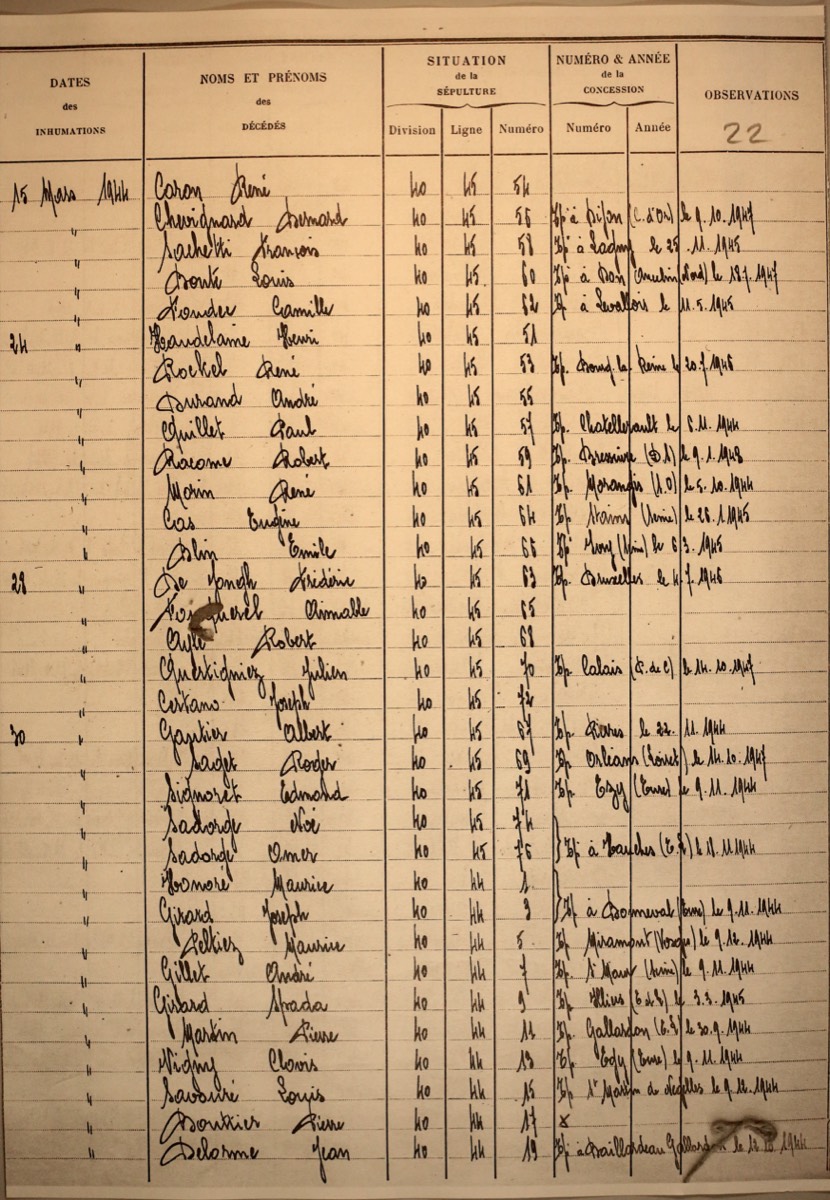 DATES des INHUMATIONS
NOMS ET PRÉNOMS des DÉCÉDÉS
SITUATION de la SÉPULTURE
NUMÉRO & ANNÉE de la CONCESSION
OBSERVATIONS
Division Ligne Numéro Numéro Année 22
15 Mars 1944 Caron René 40 45 54
" Chevignard Bernard 40 45 56 Tp à Dijon (C. d'Or) le 9.10.1947
" Sachetti François 40 45 58 Tp à Lagny le 25.11.1945
" Bonté Louis 40 45 60 Tp à Don (Nord) le 18.7.1947
" Camille 40 45 62 Tp à Levallois le 11.5.1945
24 " Haudelaine Henri 40 45 51
" Rockel René 40 45 53 Tp. Bourg la Reine le 20.7.1946
" Durand André 40 45 55
" Guillet Paul 40 45 57 Tp. Chatellerault le 6.11.1944
" Racome Robert 40 45 59 Tp. Bressuire (D.S) le 9.1.1948
" Morin René 40 45 61 Tp. Morangis (S.O) le 5.10.1944
" Cas Eugène 40 45 64 Tp. Stains (Seine) le 26.1.1945
" Blin Emile 40 45 66 Tp. Ivry (Seine) le 6.3.1945
28 " De Jongh Frédéric 40 45 63 Tp. Bruxelles le 4.7.1946
" Aimable 40 45 65
" Aylé Robert 40 45 68
" Questigniez Julien 40 45 70 Tp. Calais (P. de C) le 14.10.1947
" Cestano Joseph 40 45 72
30 " Gautier Albert 40 45 67 Tp. Pierres le 22.11.1944
" Sadet Roger 40 45 69 Tp. Orléans (Loiret) le 14.10.1947
" Signoret Edmond 40 45 71 Tp. Ezy (Eure) le 9.11.1944
" Sadorge Noé 40 45 74
" Sadorge Omer 40 45 76 } Tp à Hanches (E.L) le 18.11.1944
" Honoré Maurice 40 44 1
" Girard Joseph 40 44 3 } Tp à Bonneval (Eure) le 9.11.1944
" Peltiez Maurice 40 44 5 Tp. Miramont (Vosges) le 9.12.1944
" Gillet André 40 44 7 Tp. St Maur (Seine) le 9.11.1944
" Girard Spada 40 44 9 Tp. Illiers (E & L) le 3.3.1945
" Martin Pierre 40 44 11 Tp. Gallardon (E.L) le 30.9.1944
" Vigny Clovis 40 44 13 Tp. Ezy (Eure) le 9.11.1944
" Savouré Louis 40 44 15 Tp. St Martin de Nigelles le 9.12.1944
" Bouthier Pierre 40 44 17 x
" Delorme Jean 40 44 19 Tp à Bailleau Gallardon le 1944